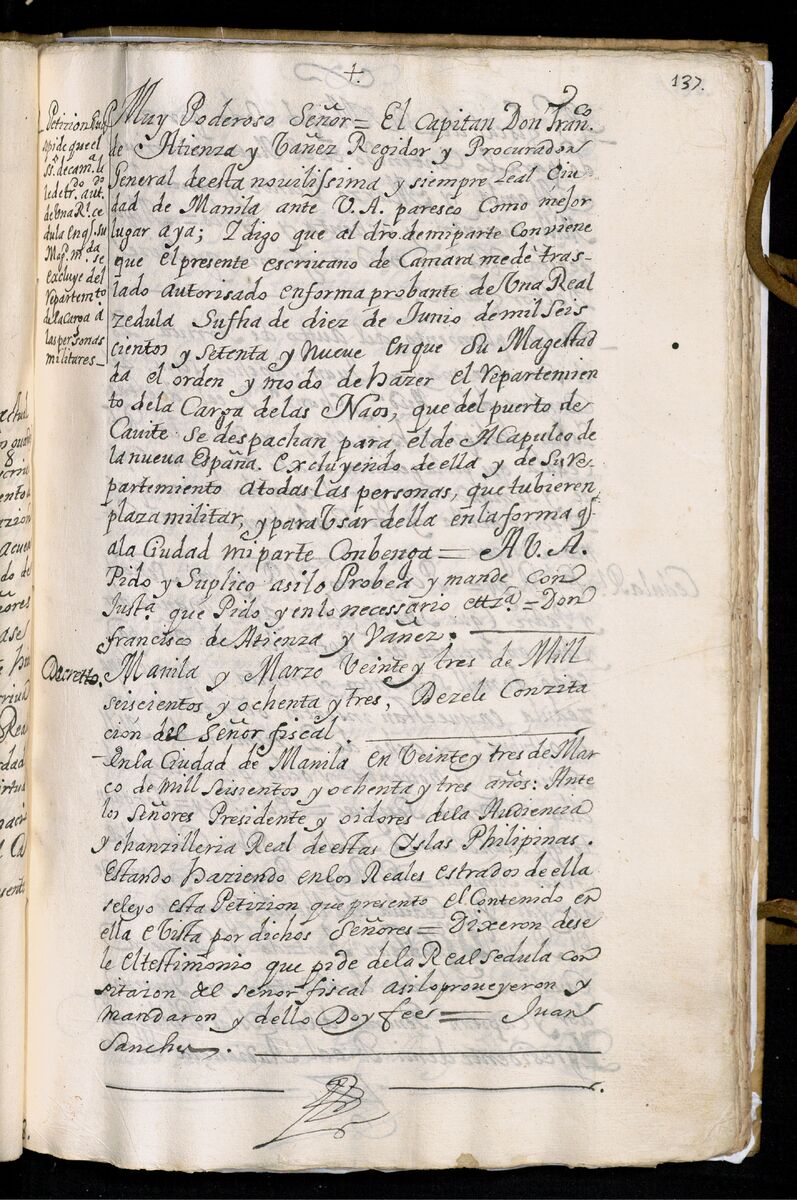 137.
Petizion En q
se pide que el
ss.º de cam.ª
le de tr.do
de una R.l ce
dula en q̃ su
Mag.d m.da se
excluye del
repartim.to
de la carga à
las personas
militares_
Muy Poderoso Señor = El Capitan Don Fran.co
de Atienza y Vañez Regidor y Procurador
General de esta novilissima y siempre Leal Ciu
dad de Manila ante V. A. paresco como mejor
lugar aya; Y digo que al dr̃o. de mi parte conviene
que el presente escrivano de Camara me dè tras-
lado autorisado en forma probante de Una Real
zedula Su fha de diez de Junio de mil Seis
cientos y setenta y Nueve en que Su Magestad
da el orden y modo de hazer el repartimien
to de la Carga de las Naos, que del puerto de
Cavite se despachan para el de Acapulco de
la nueva España. Excluyendo de ella y de su re-
partimiento a todas las personas, que tubieren
plaza militar, y para Usar della en la forma q̃
a la Ciudad mi parte Conbenga = A V. A.
Pido y Suplico asi lo Probea y mande con
Just.a que Pido y en lo necessario ettz.a = Don
francisco de Atienza y Vañez.
Decretto. Manila y Marzo Veinte y tres de Mill
seiscientos y ochenta y tres, Dezele Con zita
cion del Señor fiscal.
En la Ciudad de Manila en Veinte y tres de Mar
co de mill seisientos y ochenta y tres años: Ante
los Señores Presidente y oidores de la Audiencia
y chanzilleria Real de estas Yslas Philipinas.
Estando haziendo en los Reales estrados de ella
se leyo esta Petizion que presento el Contenido en
ella e Vista por dichos Señores = Dixeron de se
le el testimonio que pide de la Real sedula con
sitaion del señor fiscal asi lo proveyeron y
mandaron y dello Doy fee = Juan
Sanches.